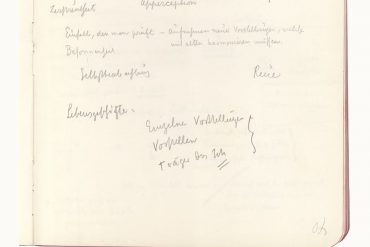 Zerstreutheit Apperception
Einfall, den man prüft – Aufnehmen neuer Vorstellungen, welche
mit alten harmonieren müssen.
Besonnenheit
Selbstbeobachtung Reue
Lebensgefühle –
Einzelne Vorstellungen
Vorstellen
Träger des Ich